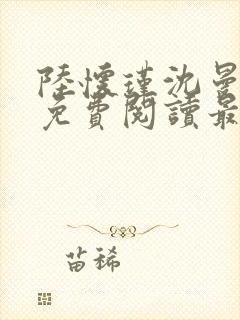 陸懷瑾沈曼
免費閱讀最
苗稀